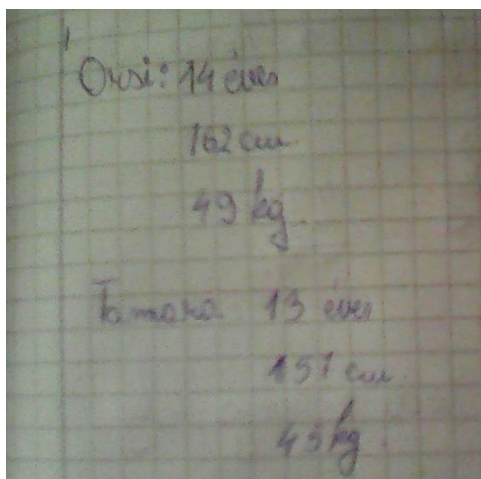 Orsi: 14 éves
162 cm
49 kg
Tamara 13 éves
157 cm
45 kg